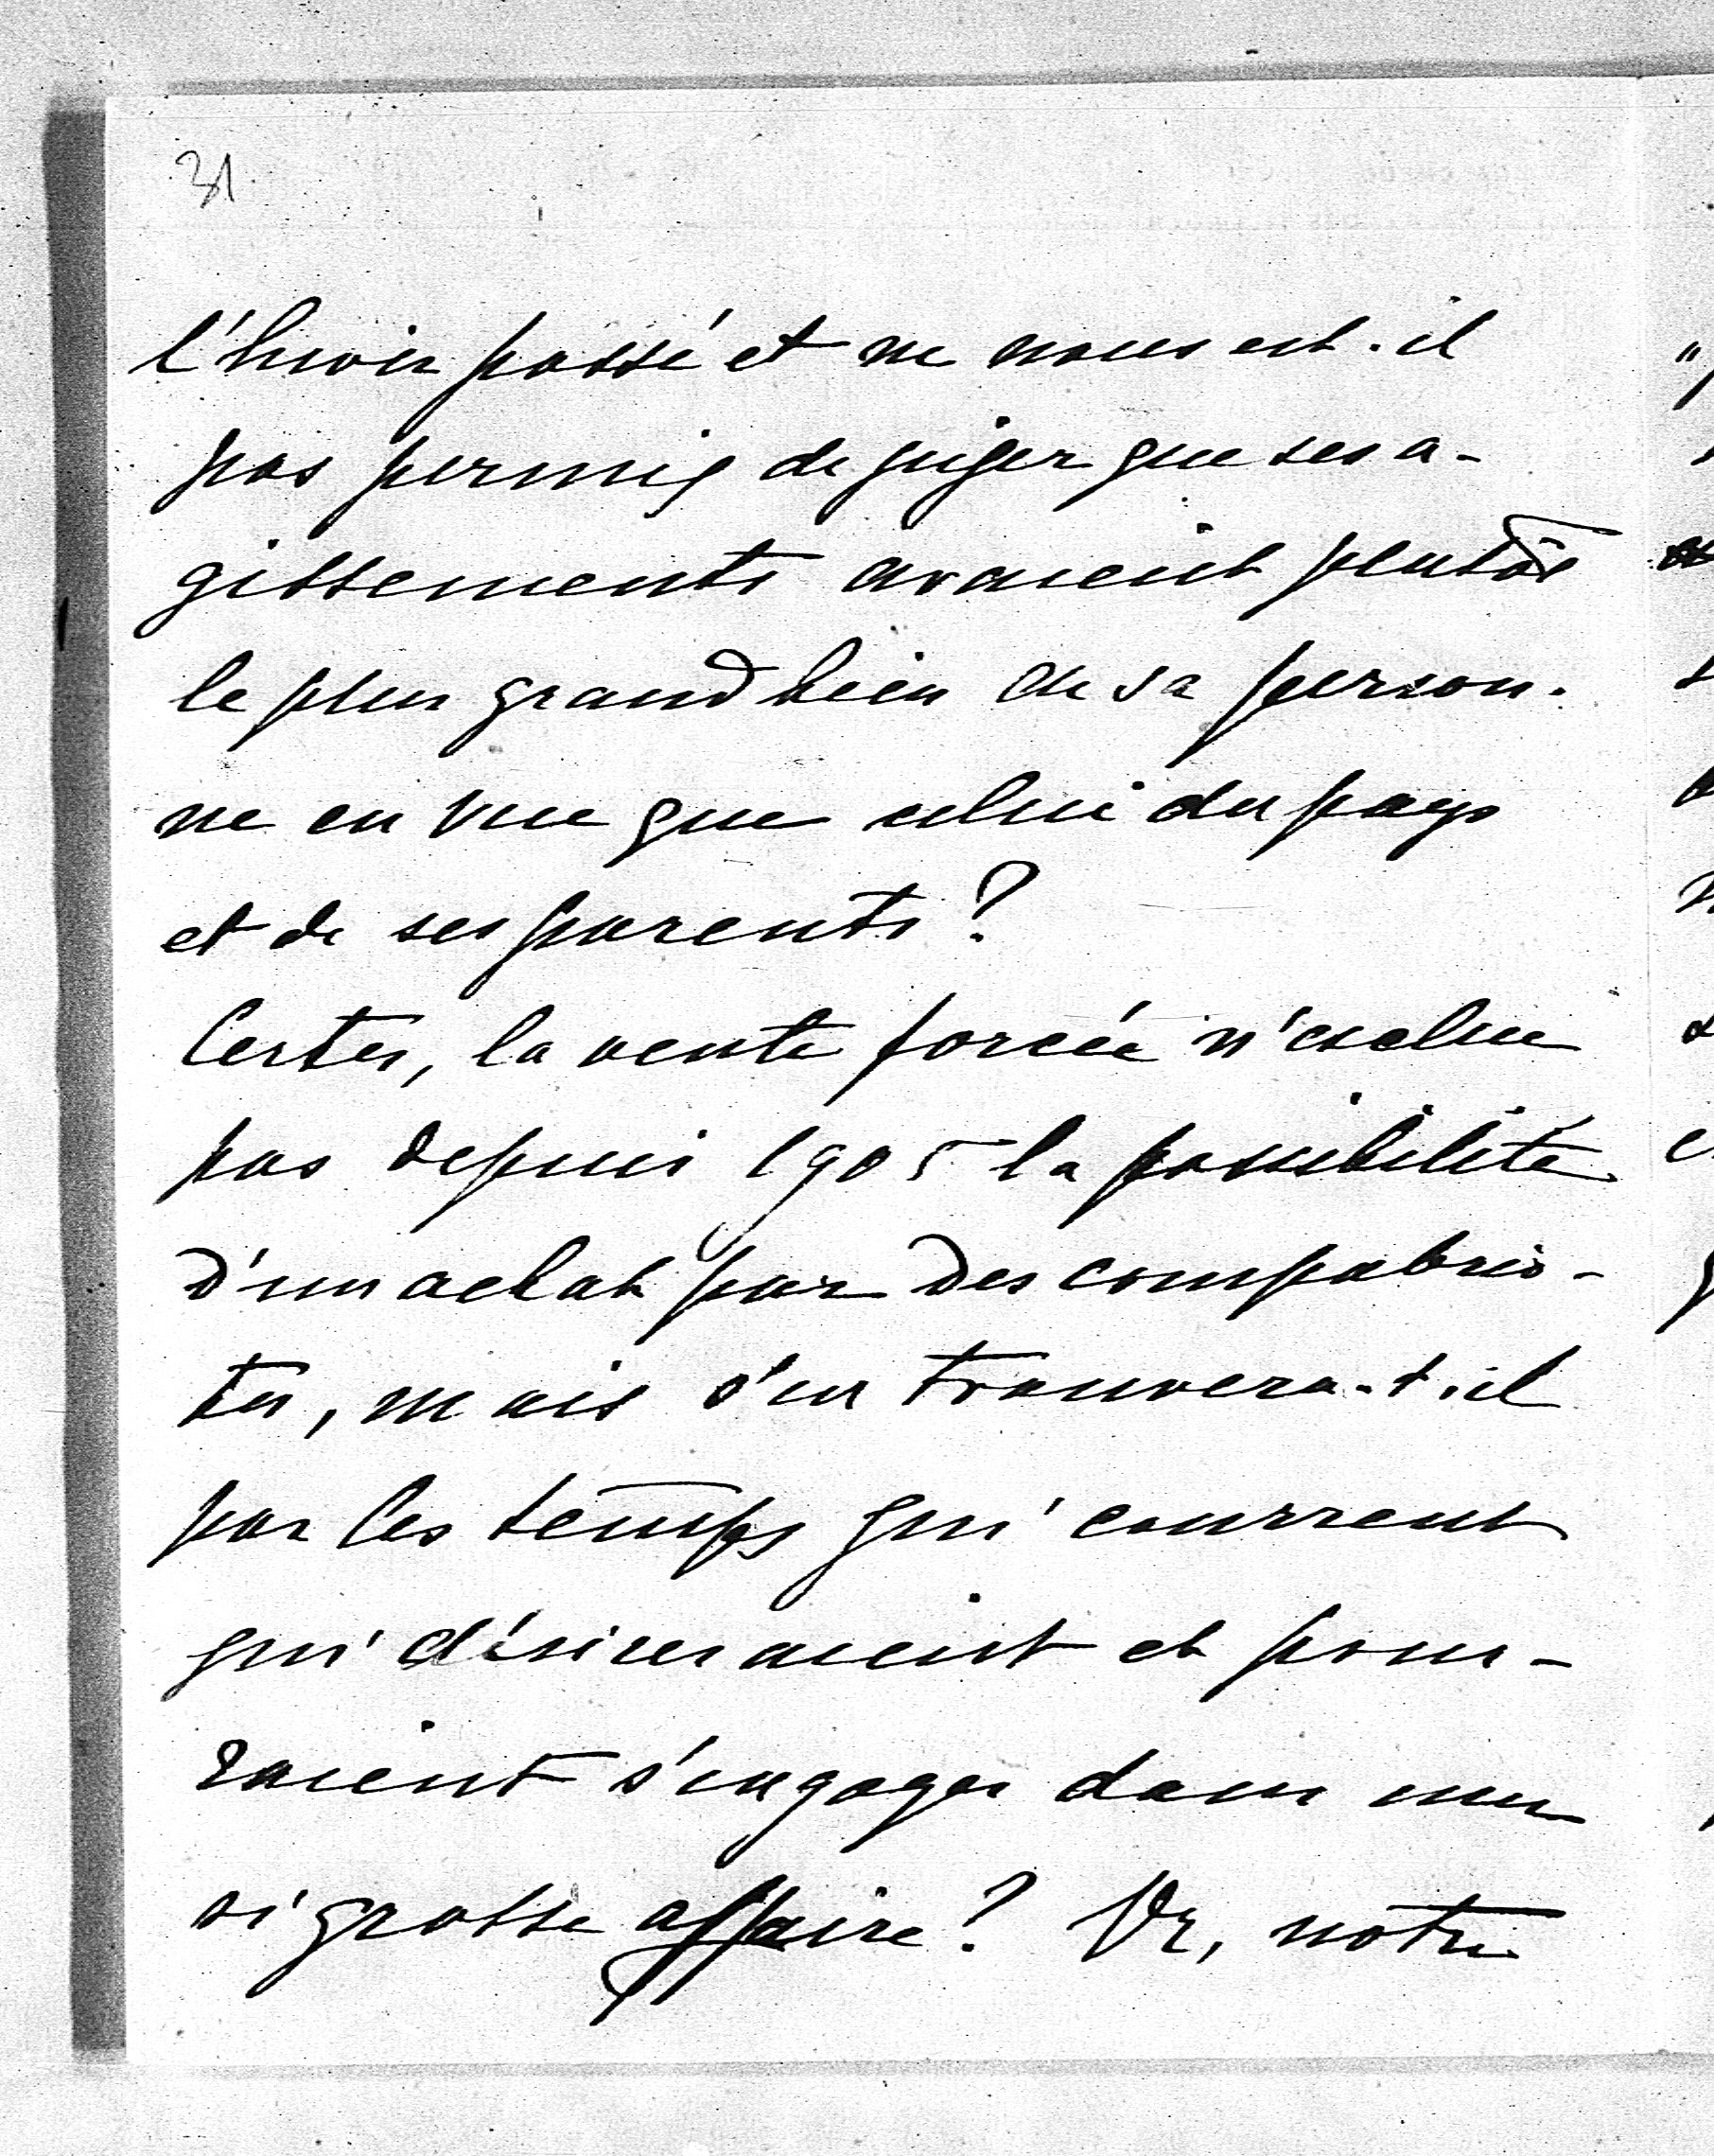 31
l'hiver passé et ne nous est-il
pas permis de juger que ses a-
gissements avaient plutôt
le plus grand bien de sa person-
ne en vue que celui du pays
et de ses parents?
Certes, la vente forcée n'exclue
pas depuis 1905 la possibilité
d'un achat par des compatrio-
tes, mais s'en trouvera-t-il
par les temps qui courrent
qui désireraient et pour-
raient s'engager dans une
si grosse affaire? Or, notre